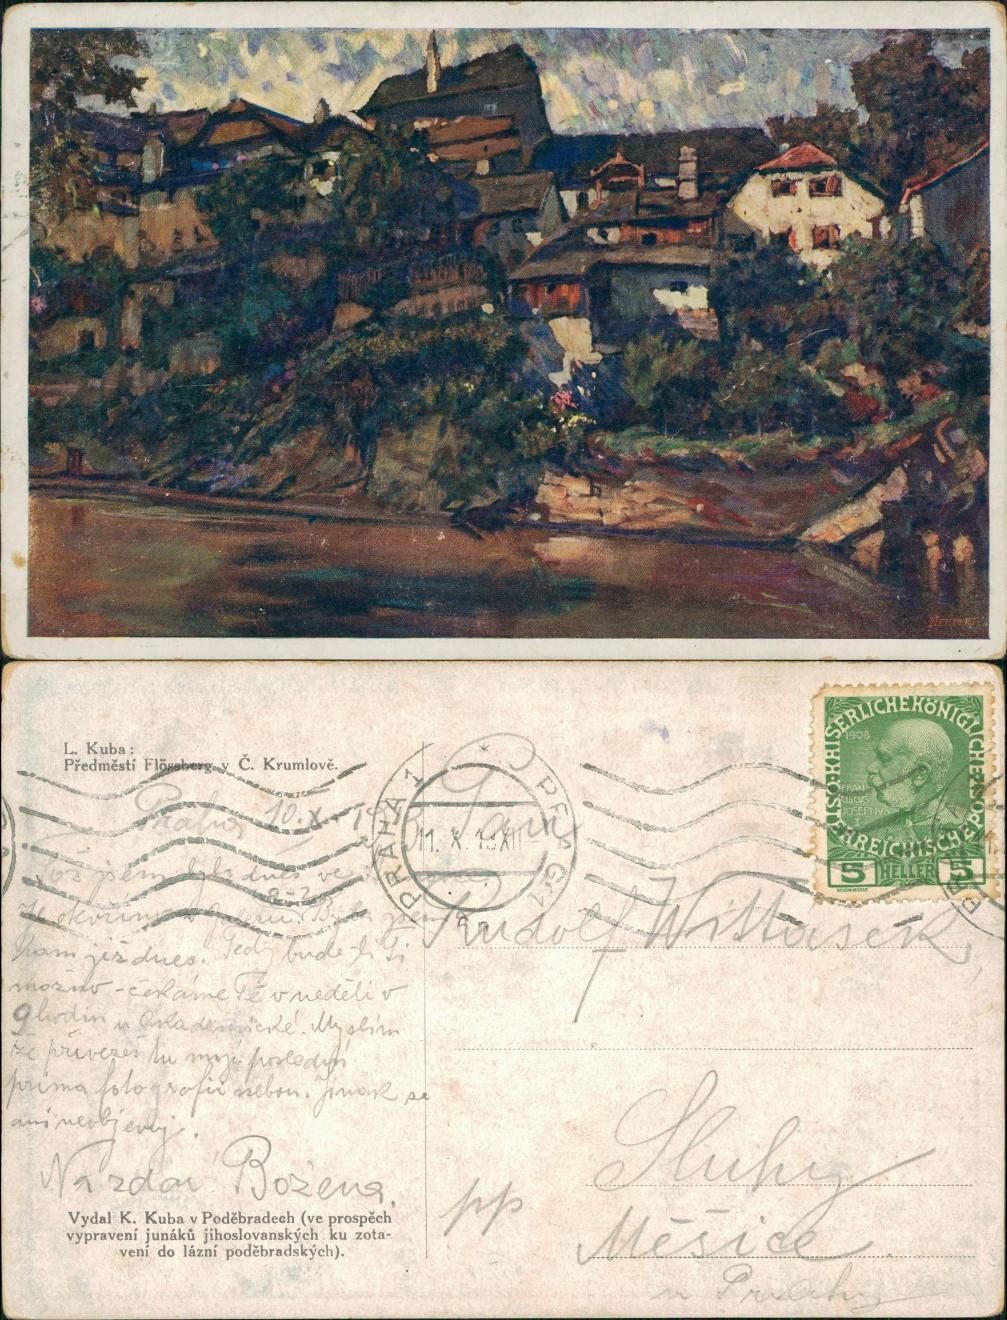 L. Kuba:
Předměstí Flössberg v Č. Krumlově.
Praha 10. X.
jsem byla dnes ve
2-3
v galerii. Byla jsem
tam již dnes. Tedy bude-li Ti
možno - čekáme Tě v neděli v
9 hodin u Akademické. Myslím
že přivezeš tu moji poslední
prima fotografii sebou. Jinak se
ani neobjevuj.
Nazdar Božena.
Vydal K. Kuba v Poděbradech (ve prospěch
vypravení junáků jihoslovanských ku zota-
vení do lázní poděbradských).
PRAHA 1
PRAGA
11. X. 13 XII
KAISERLICHEKÖNIGLICHE
ÖSTERREICHISCHE POST
1908
FRAN
CISCVS
JOSEFTIVS
I
5 HELLER 5
Pan
Rudolf Wittasek,
Sluhy
pp
Měšice
u Prahy